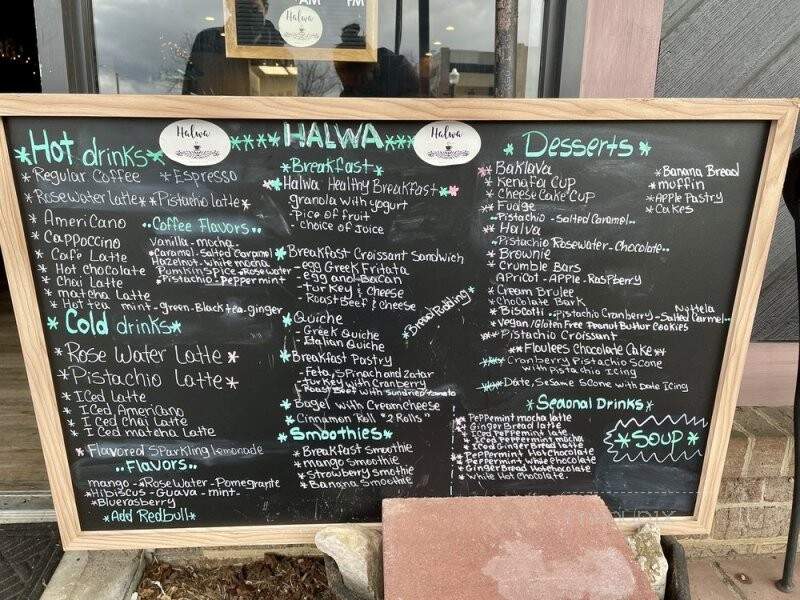 AM PM
Halwa
Halwa
HALWA
Halwa
*Hot drinks*
*Regular Coffee *Espresso
*Rose water Latte* *Pistachio latte*
*Americano
*Cappoccino
*Cafe Latte
*Hot chocolate
*Chai Latte
*matcha Latte
*Hot tea mint-green-Black tea-ginger
..Coffee Flavors..
Vanilla-mocha
*Caramel-Salted Caramel
Hazelnut-white mocha
Pumkin Spice-Rosewater
*Pistachio-Peppermint
*Cold drinks*
*Rose Water Latte*
*Pistachio Latte*
*Iced Latte
*Iced Americano
*Iced chai Latte
*Iced matcha Latte
*Flavored Sparkling lemonade
..Flavors..
mango-*RoseWater-Pomegrante
*Hibiscus-Guava-mint-
*Blue rasberry
*Add Redbull*
*Breakfast*
*Halwa Healthy Breakfast*
granola with yogurt
-Pice of fruit
-choice of Joice
*Breakfast Croissant Sandwich
-egg Greek Fritata
-egg and Bacan
-turkey & cheese
-Roast Beef & cheese
*Bread Pudding*
*Quiche
-Greek Quiche
-Italian Quiche
*Breakfast Pastry
-Feta, Spinach and Zatar
-Turkey with Cranberry
-Roast Beef with sundried tomato
*Bagel with Creamcheese
*Cinnamon Roll "2 Rolls"
*Smoothies*
*Breakfast smoothie
*mango Smoothie
*Strowberry smothie
*Banana Smoothie
*Desserts*
*Baklava
*Kenafai Cup
*Cheese Cake Cup
*Fudge
..Pistachio-Salted Caramel..
*Halva
..Pistachio Rosewater-Chocolate..
*Brownie
*Crumble Bars
Apricot-Apple-Raspberry
*Cream Brulee
*Chocolate Bark
*Biscotti-Pistachio Cranberry-Salted Caramel.. Nuttela
*Vegan/Gluten Free Peanut Buttur Cookies
*Pistachio Croissant
**Flawlees Chocolate Cake**
Cranberry Pistachio Scone
with Pistachio Icing
Date, Sesame Scone with Date Icing
*Banana Bread
*muffin
*Apple Pastry
*Cakes
*Seaonal Drinks*
*Peppermint mocha latte
*Ginger Bread latte
*Iced Peppermint latte
*Iced Peppermint mocha
*Iced Ginger Bread latte
*Peppermint Hot chocolate
*Peppermint White chocolate
*Ginger Bread Hot chocolate
*White Hot Chocolate.
*Soup*